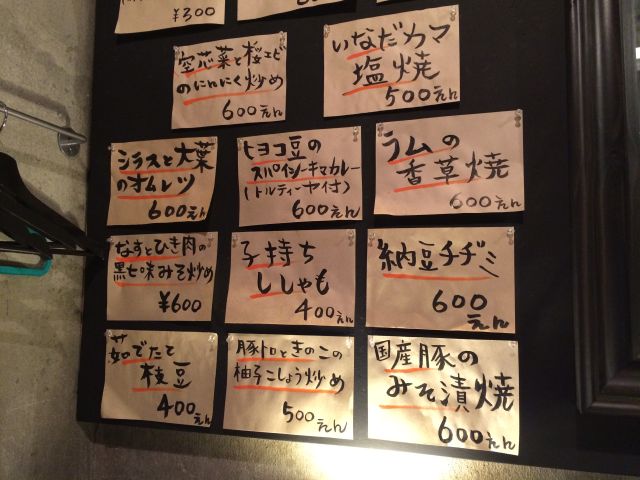 ¥300
空芯菜と桜エビ
のにんにく炒め
600えん
いなだカマ
塩焼
500えん
シラスと大葉
のオムレツ
600えん
ヒヨコ豆の
スパイシーキーマカレー
(トルティーヤ付)
600えん
ラムの
香草焼
600えん
なすとひき肉の
黒七味みそ炒め
¥600
子持ち
ししゃも
400えん
納豆チヂミ
600
えん
茹でたて
枝豆
400えん
豚トロときのこの
柚子こしょう炒め
500えん
国産豚の
みそ漬焼
600えん